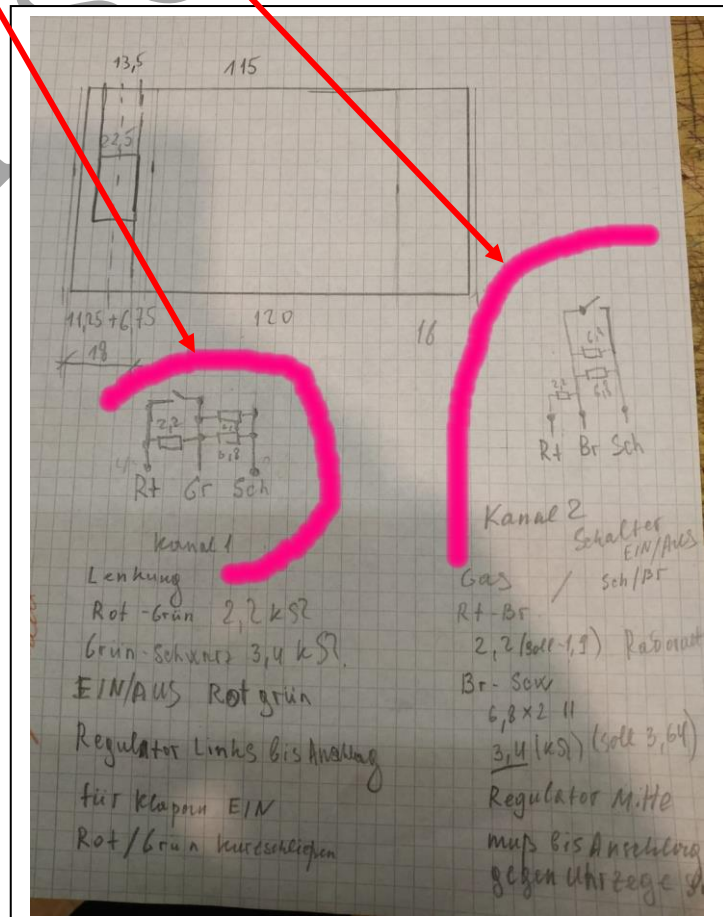 13,5 115
22,5
11,25 + 6,75 120 16
18
2,2
6,8
Rt Gr Sch
6,8
2,2 6,8
Rt Br Sch
Kanal 1
Lenkung
Rot - Grün 2,2 kΩ
Grün - Schwarz 3,4 kΩ
EIN/AUS Rot grün
Regulator Links bis Anschlag
für Klappen EIN
Rot / Grün kurzschließen
Kanal 2
Schalter
EIN/AUS
Gas / Sch/Br
Rt - Br
2,2 (soll - 1,9)
Br - Scw
6,8 x 2 II
3,4 (kΩ) (soll 3,64)
Regulator Mitte
muß bis Anschlag
gegen Uhrzege